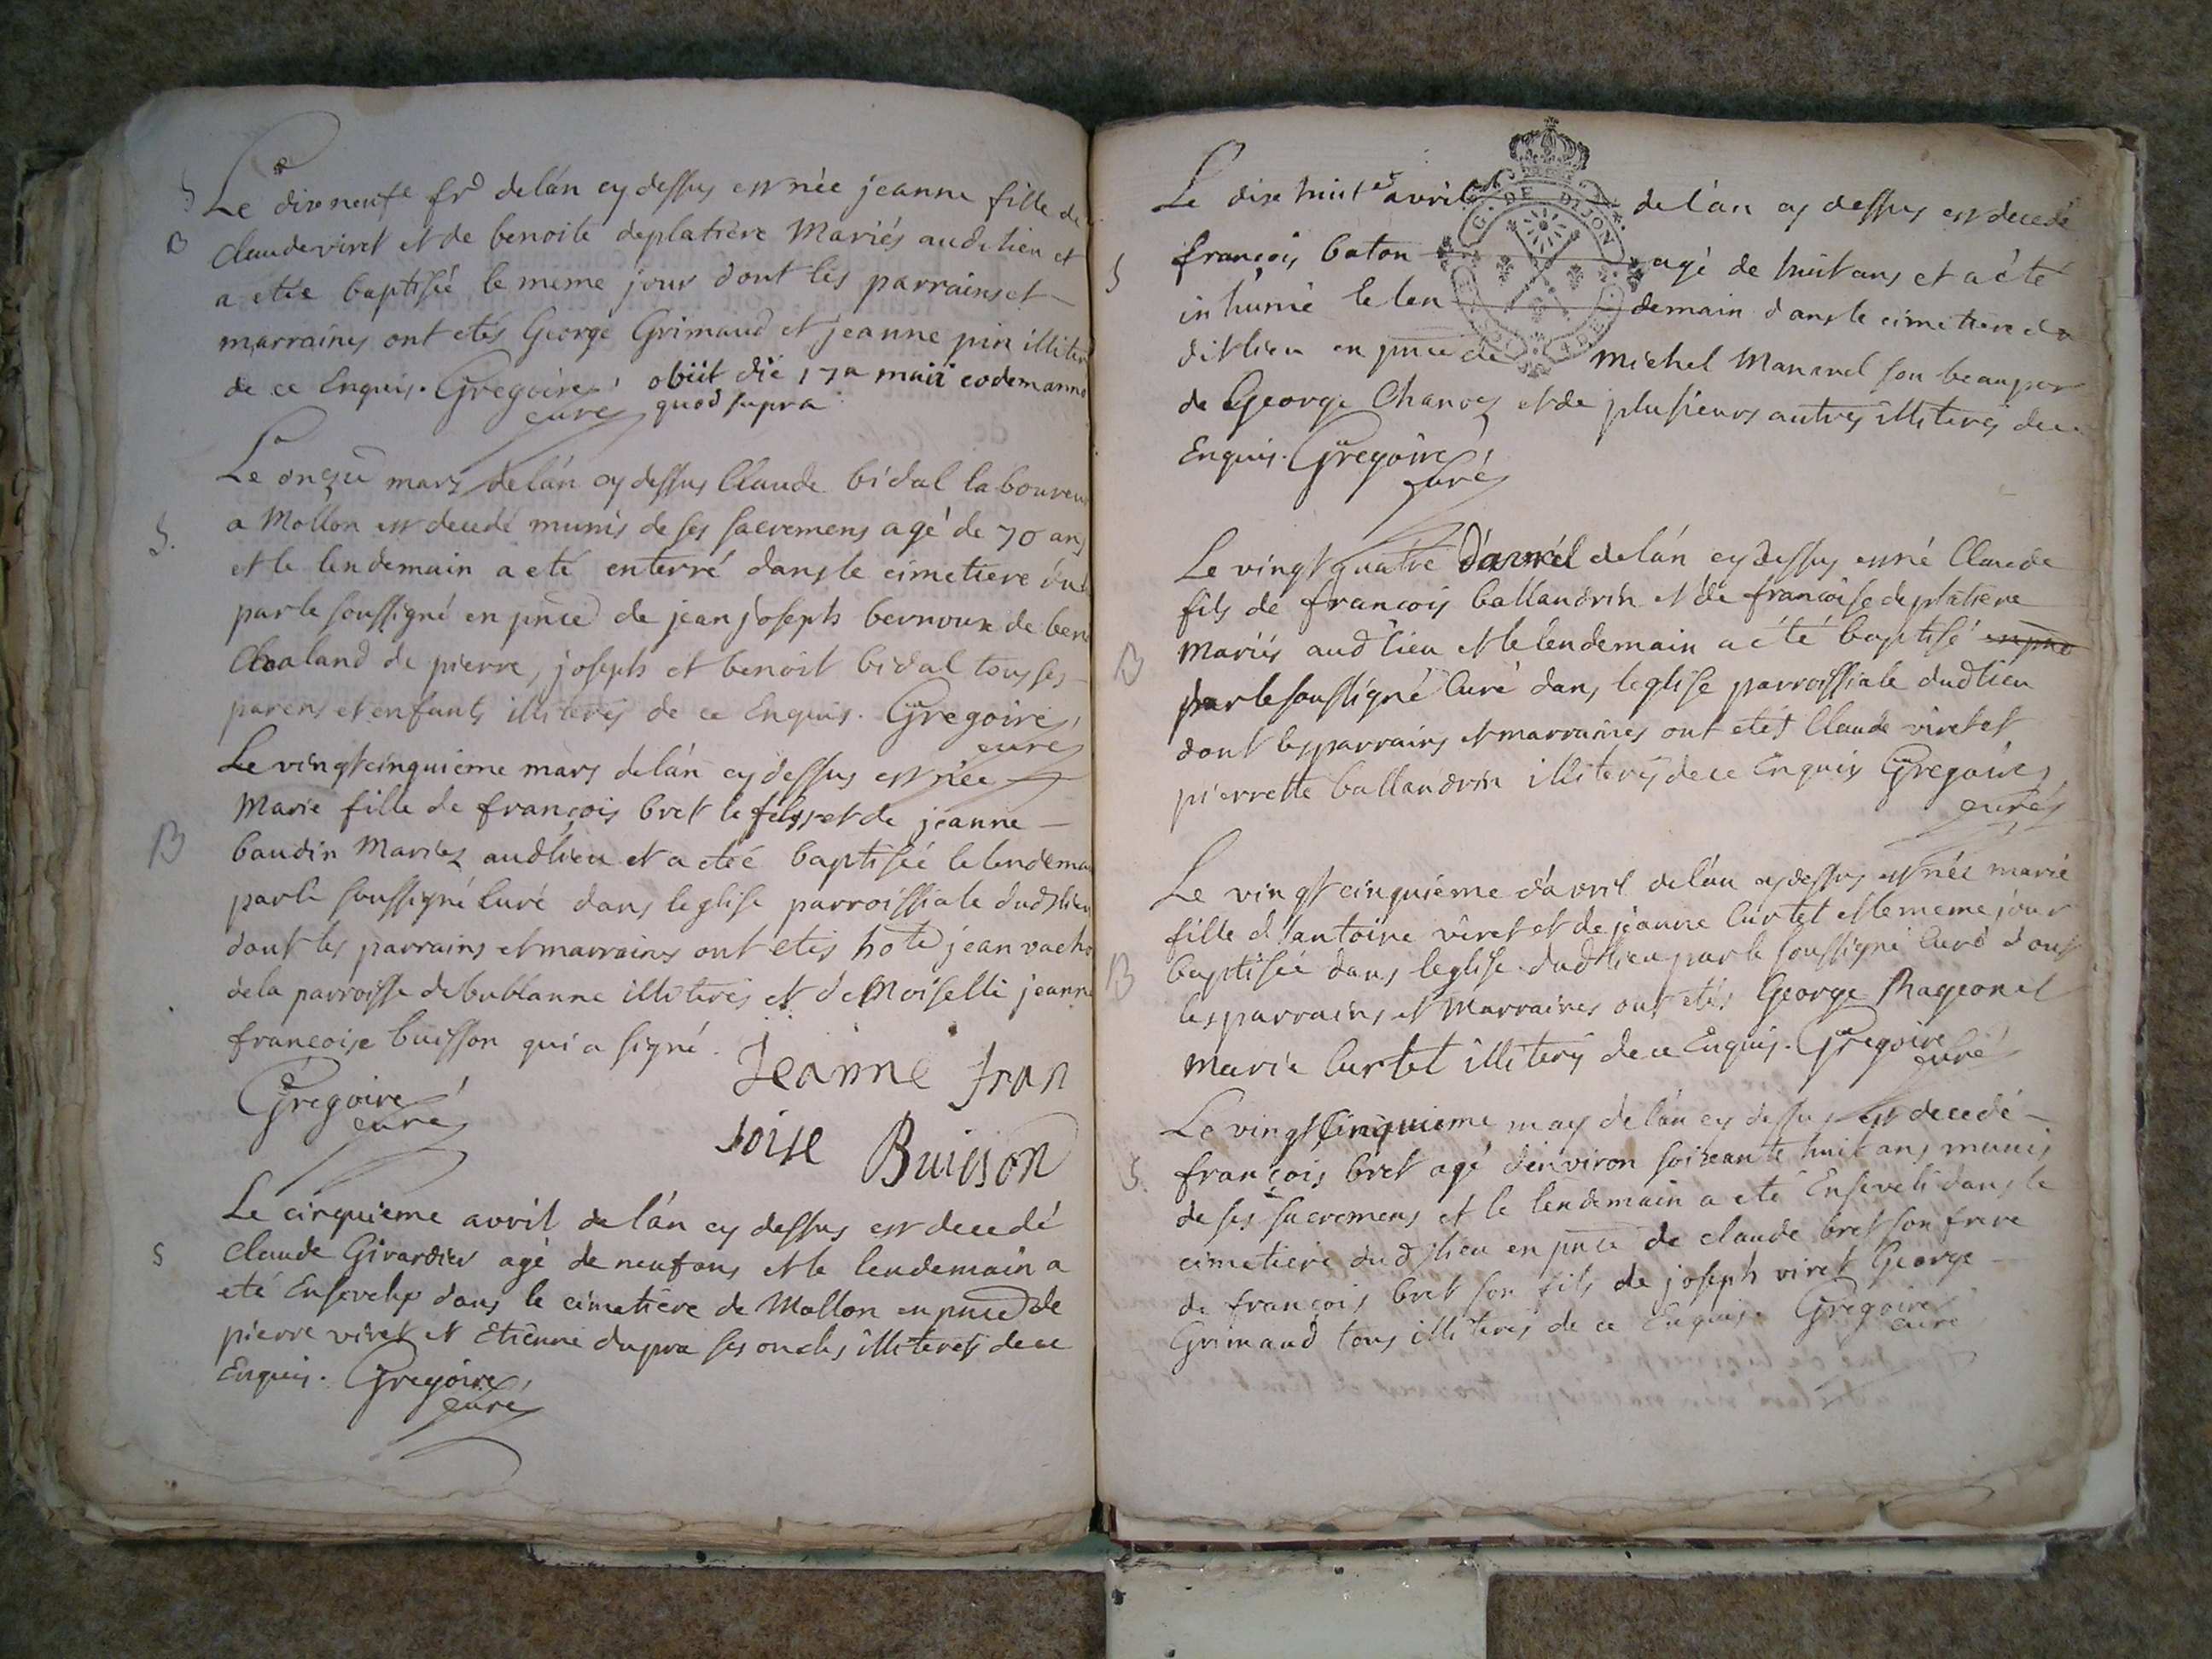 S
Le dixneufe fr̃d delán cy dessus est née jeanne fille de
B
claude viret et de benoite deplatiere Mariés audit lieu et
a etée baptisée le meme jour dont les parrains et
marraines ont etés George Grimaud et jeanne pin illiter
de ce Enquis. Gregoire obiit die 17a maii eodem anno
curé quod supra
Le onze mars delán cy dessus Claude bidal laboureur
S.
a Mollon est decedé munis de ses sacremens agé de 70 ans
et le lendemain a eté enterré dans le cimetiere dud
par le soussigné en pnce de jean joseph bernoux de ben
Chaland de pierre, joseph et benoit bidal tous ses
parens et enfants illiterés de ce Enquis. Gregoire
curé
Le vingtcinquieme mars delán cy dessus est née
Marie fille de françois bret le fils et de jeanne
B
baudin Mariez audlieu et a eteé baptisée le lendemai
par le soussigné Curé dans leglise parroissiale dudlieu
dont les parrains et marraines ont etés hote jean vacho
dela parroisse de bublanne illiterés et deMoiselle jeanne
francoise buisson qui a signé.
Jeanne fran
Gregoire
curé
soise Buisson
Le cinquieme avril delán cy dessus est decedé
S
Claude Girardier agé de neuf ans et le lendemain a
eté Enseveli dans le cimetiere de Mollon en pnce de
pierre viret et Etienne dupra ses oncles illiterés de ce
Enquis. Gregoire
curé
Le dix huite avril delán cy dessus est decedé
G. DE DIJON
S
françois baton agé de huit ans et a été
inhumé le len demain dans le cimetiere du
dit lieu en pnce de Michel Mananel son beauper
de George Chanoz et de plusieurs autres illiterés de ce
Enquis. Gregoire
curé
Le vingt quatre d'avril delán cy dessus est né Claude
fils de francois ballandrin et de francoise deplatiere
Mariés audlieu et le lendemain a été baptisé en pnce
B
par le soussigné Curé dans leglise parroissiale dudlieu
dont les parrains et marraines ont etés Claude viret et
pierrette ballandrin illiterés de ce Enquis Gregoire
curé
Le vingt cinquieme d'avril delán cy dessus est née marie
fille d'antoine viret et de jeanne Curtet et le meme jour
B
baptisée dans leglise dudlieu par le soussigné Curé dont
les parrains et Marraines ont etés George Rageonet
Marie Curtet illiterés de ce Enquis. Gregoire
curé
Le vingt Cinquieme may delán cy dessus est decedé
S.
françois bret agé d'environ soixante huit ans munis
de ses sacremens et le lendemain a eté Enseveli dans le
cimetiere dudlieu en pnce de claude bret son frere
de françois bret son fils de joseph viret George
Grimaud tous illiterés de ce Enquis. Gregoire
curé